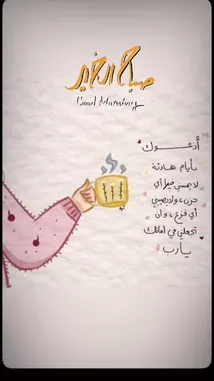 صباح الخير
Good Morning
أدعوك
بأيام هادئة
لا يمسني فيها أي
حزن، ولا يصيبني
أي فزع، وأن
تجعلني في أمانك
يارب